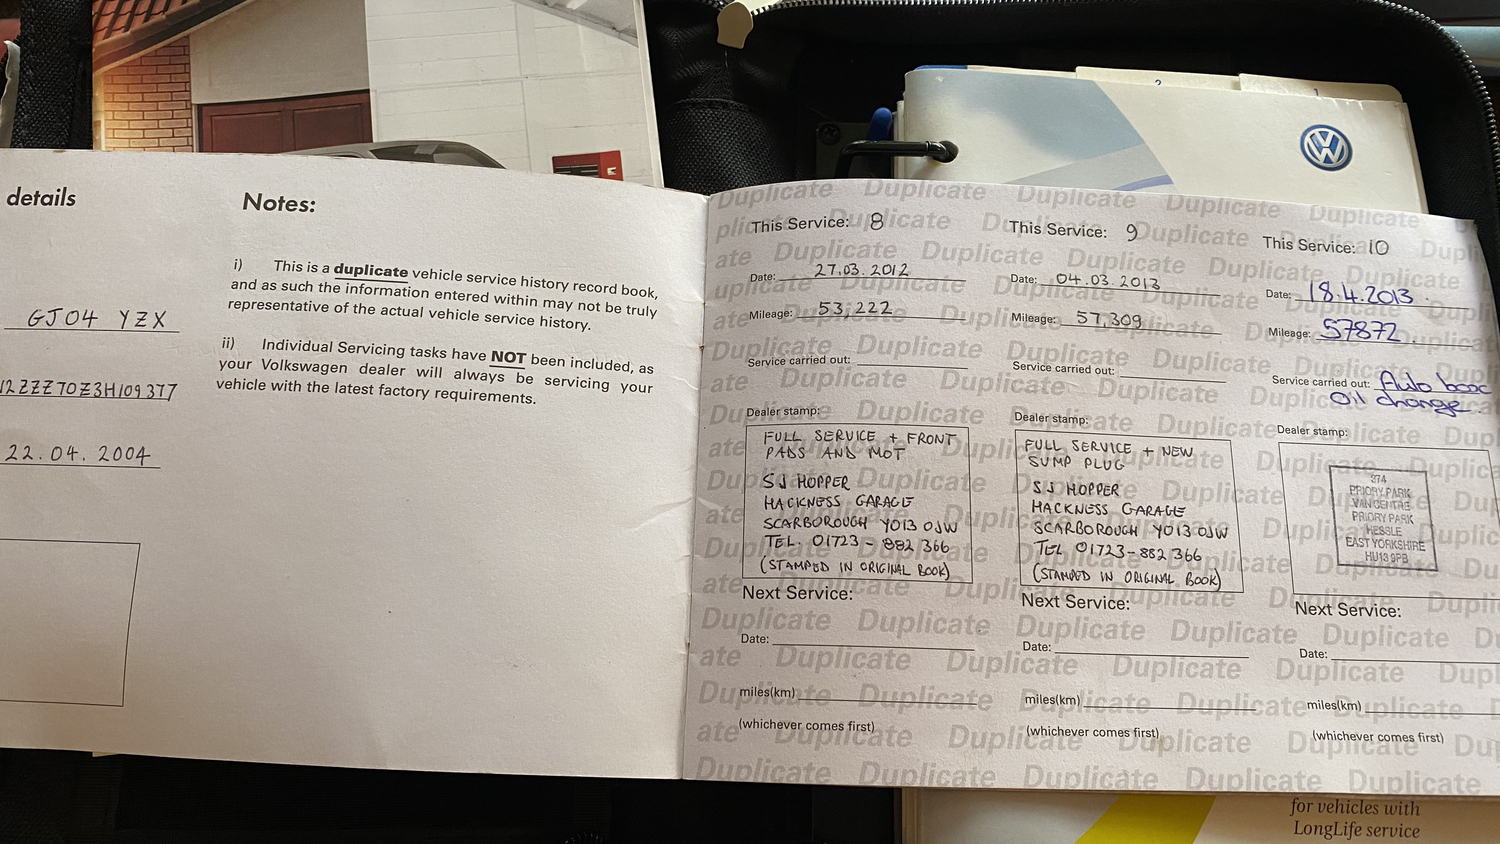 details
GJ04 YZX
12ZZZ70Z3H109377
22.04.2004
Notes:
i) This is a duplicate vehicle service history record book,
and as such the information entered within may not be truly
representative of the actual vehicle service history.
ii) Individual Servicing tasks have NOT been included, as
your Volkswagen dealer will always be servicing your
vehicle with the latest factory requirements.
This Service: 8
Date: 27.03.2012
Mileage: 53,222
Service carried out:
Dealer stamp:
FULL SERVICE + FRONT
PADS AND MOT
SJ HOPPER
HACKNESS GARAGE
SCARBOROUGH YO13 0JW
TEL. 01723-882 366
(STAMPED IN ORIGINAL BOOK)
Next Service:
Date:
miles(km)
(whichever comes first)
This Service: 9
Date: 04.03.2013
Mileage: 57,309
Service carried out:
Dealer stamp:
FULL SERVICE + NEW
SUMP PLUG
SJ HOPPER
HACKNESS GARAGE
SCARBOROUGH YO13 0JW
TEL 01723-882 366
(STAMPED IN ORIGINAL BOOK)
Next Service:
Date:
miles(km)
(whichever comes first)
This Service: 10
Date: 18.4.2013.
Mileage: 57872
Service carried out: Auto box
Oil change.
Dealer stamp:
374
PRIORY PARK
VAN CENTRE
PRIORY PARK
HESSLE
EAST YORKSHIRE
HU13 9PB
Next Service:
Date:
miles(km)
(whichever comes first)
Duplicate
2
1
VW
for vehicles with
LongLife service